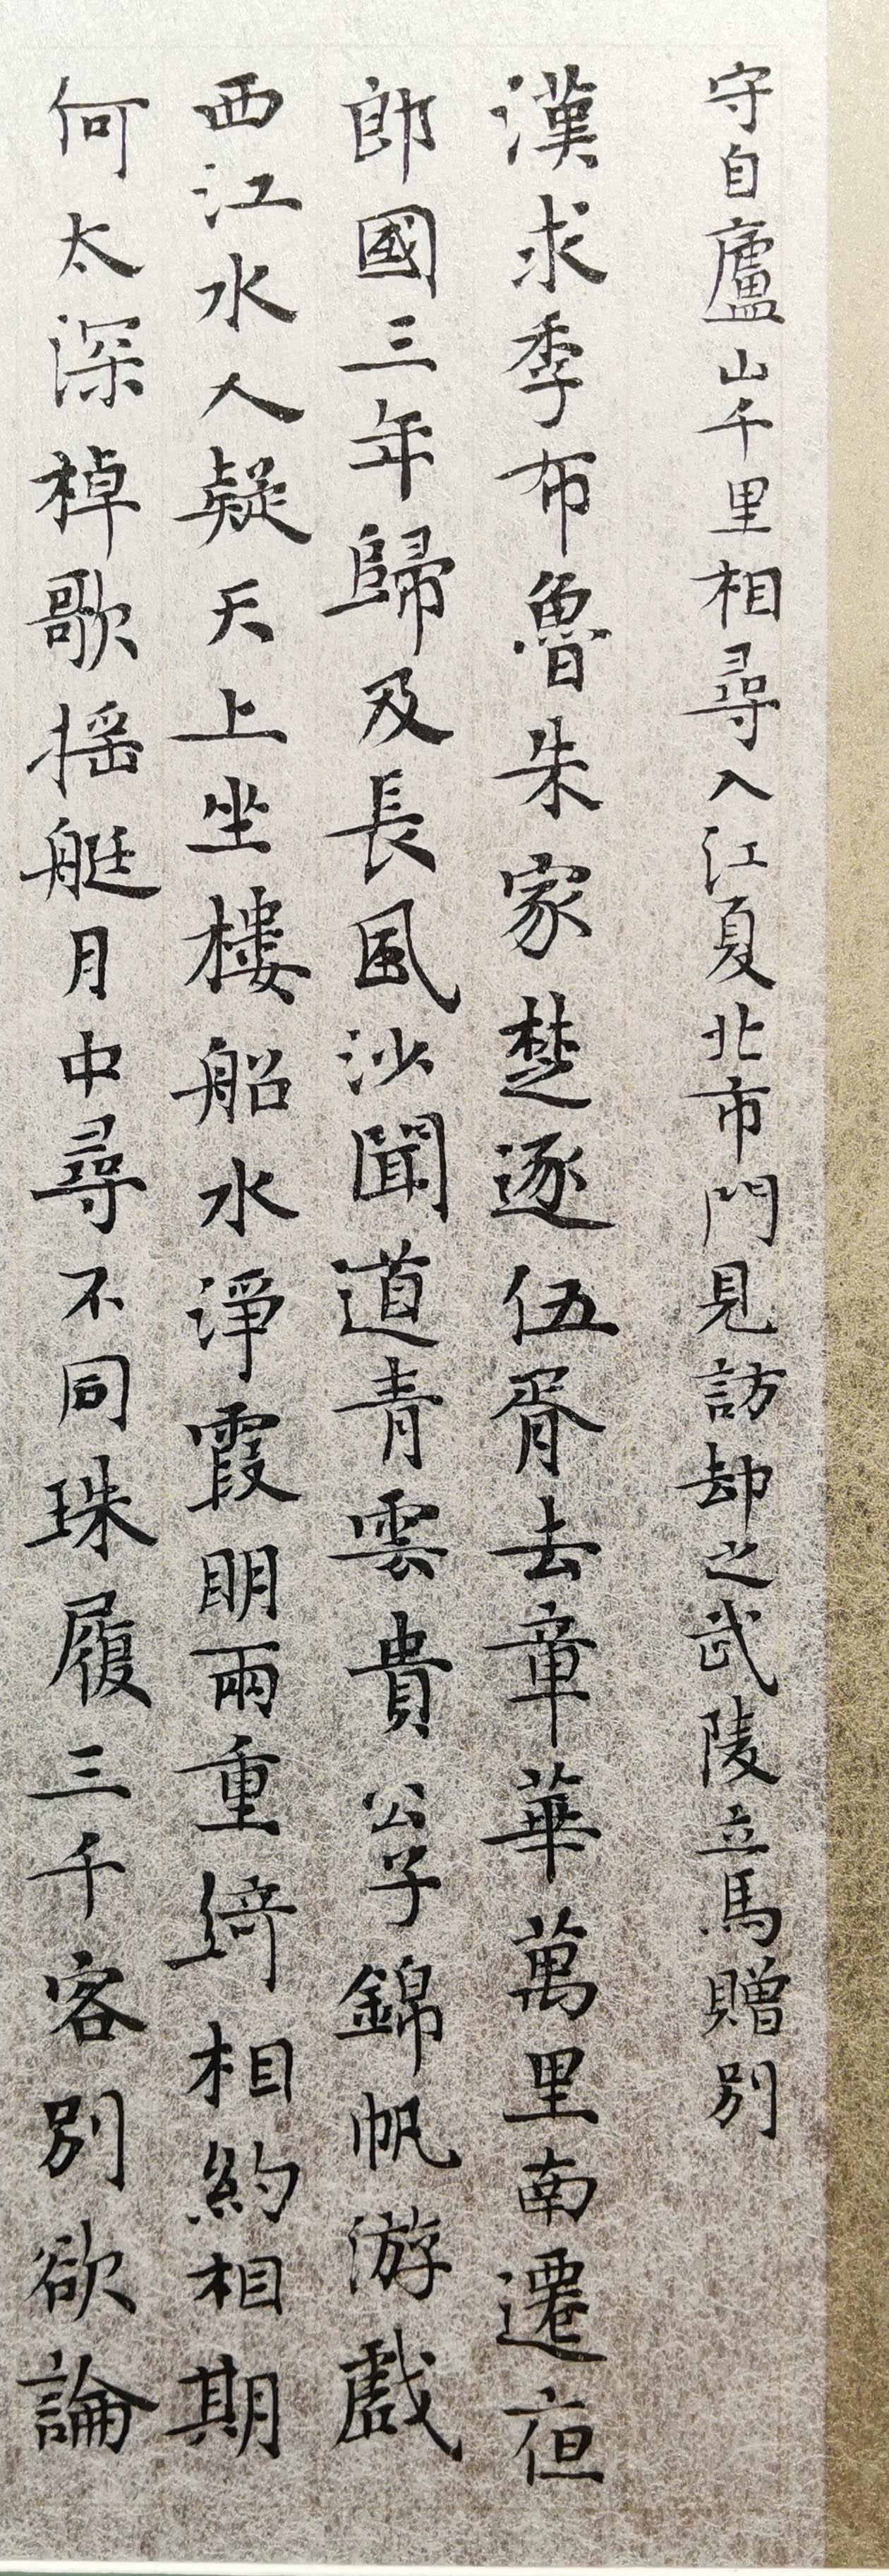 守自廬山千里相尋入江夏北市門見訪却之武陵立馬贈別
漢求季布魯朱家楚逐伍胥去章華萬里南遷夜
郎國三年歸及長風沙聞道青雲貴公子錦帆游戲
西江水人疑天上坐樓船水淨霞明兩重綺相約相期
何太深棹歌搖艇月中尋不同珠履三千客別欲論